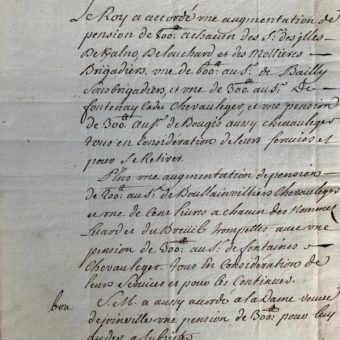 Le Roy a accordé une augmentation de
pension de 600ᵗᵗ a chacun des Sʳˢ des jlles
Delouchard et des Mollieres
Brigadiers, une de 600ᵗᵗ au Sʳ de Bailly
Sousbrigadiers, et une de 300ᵗᵗ au Sʳ De
fontenay Chevauleger et une pension
de 300ᵗᵗ au Sʳ de Bougis aussy chevauleger
tous en considération de leurs services et
pour se Retirer.
Plus une augmentation de pension
de 200ᵗᵗ au Sʳ de Boullainvilliers Chevauleger
et une de Cent livres a chacun des Nommés
et du Breuil trompettes, avec une
pension de 300ᵗᵗ au Sʳ de fontaines
Chevauleger tous en Considération de
leurs services et pour les Continuer.
bon S. M. a aussy accordé a la Dame veuve
de joinville une pension de 300ᵗᵗ pour luy
aider a subsister